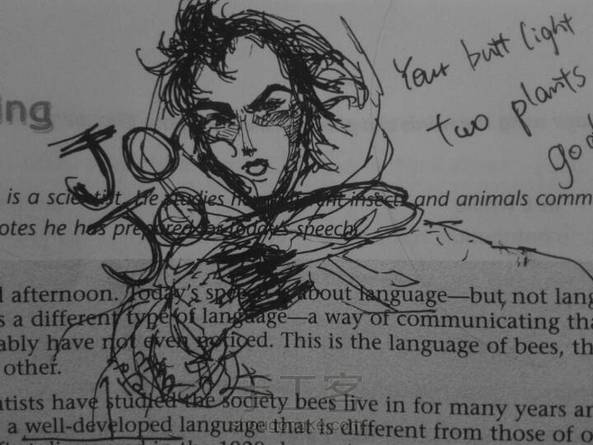 Your butt light
two plants
ing
JO
JO
is a scientist. He studies insects and animals comm
otes he has prepared for today's speech.
l afternoon. Today's speech is about language—but, not lang
s a different type of language—a way of communicating tha
ably have not even noticed. This is the language of bees, th
other.
ntists have studied the society bees live in for many years an
a well-developed language that is different from those of o